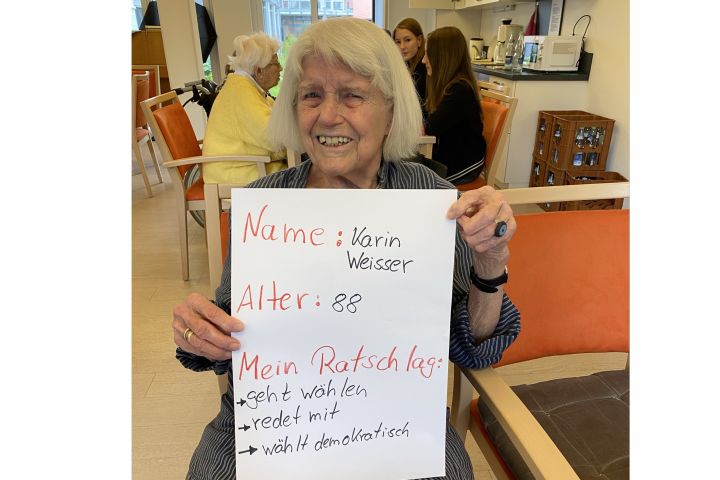 Name: Karin
Weisser
Alter: 88
Mein Ratschlag:
→geht wählen
→redet mit
→wählt demokratisch